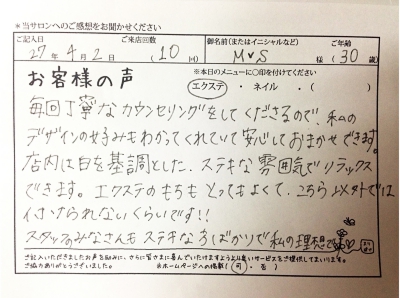 *当サロンへのご感想をお聞かせください
ご記入日 ご来店回数 御名前(またはイニシャルなど) ご年齢
27年4月2日 (10)回 M♥S 様 (30)歳
お客様の声
*本日のメニューに○印を付けてください
エクステ ・ ネイル ・( )
毎回丁寧なカウンセリングをしてくださるので、私の
デザインの好みもわかってくれていて安心しておまかせできます。
店内は白を基調とした、ステキな雰囲気でリラックス
できます。エクステのもちもとってもよくて、こちら以外では
付けられないくらいです!!
スタッフのみなさんもステキな方ばかりで私の理想です
ご記入いただきましたお声を励みに、さらに皆さまに喜んでいただけますようより良いサービスをご提供してまいります。
ご協力ありがとうございました。 ※ホームページへの掲載( 可 ・ 否 )